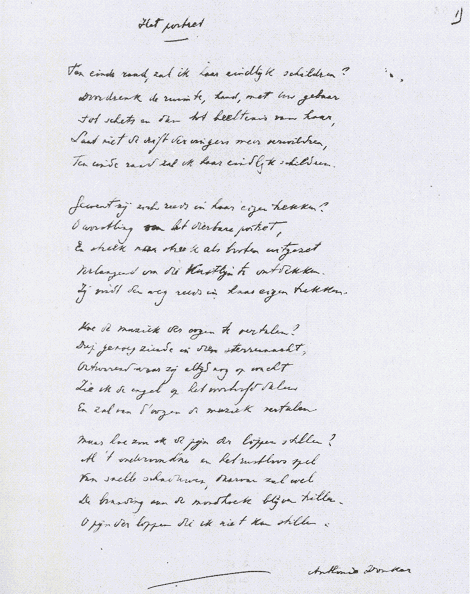 Het portret
1)
Ten einde raad, zal ik haar eindlijk schilderen?
Doordrenk de ruimte, hand, met uw gebaar
Tot schets en dan tot beeltenis van haar,
Laat niet de drift der vingers meer verwildren,
Ten einde raad zal ik haar eindlijk schildren.
Gewent zij zich reeds in haar eigen trekken?
O worstling om het dierbare portret,
En streek na streek als broken uitgezet
Verlangend om die te ontdekken.
Zij vindt den weg reeds in haar eigen trekken.
Hoe de muziek der oogen te vertalen?
genoeg ziende in dien sterrennacht,
waar zij altijd nog op wacht
Zie ik de engel op het voorhoofd dalen
En zal van d'oogen de muziek vertalen
Maar hoe zou ik de pijn der lippen stillen?
Al 't en het rustloos spel
Van snelle schaduwen, daarom zal wel
De branding aan de mondhoek blijven trillen.
O pijn der lippen die ik niet kan stillen.
Anthonie Donker